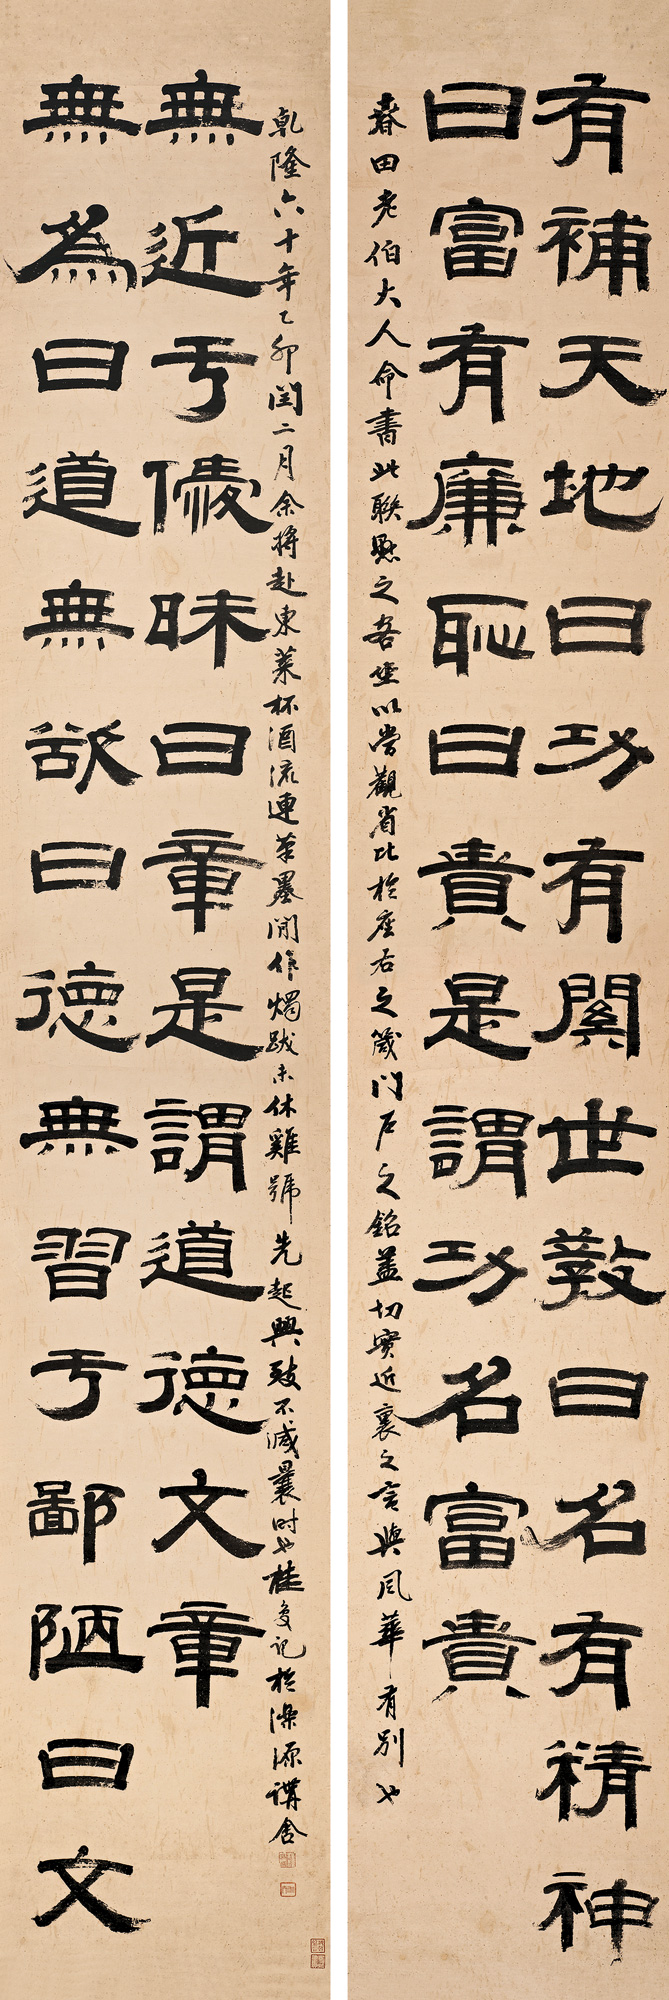 有補天地曰功有關世教曰名有精神
曰富有廉恥曰貴是謂功名富貴
春田老伯大人命書此聯懸之客坐以當觀省比於座右之箴門戶之銘蓋切實近裏之言與風華有別也
無為曰道無欲曰德無習于鄙陋曰文
無近于僾昧曰章是謂道德文章
乾隆六十年乙卯閏二月余將赴東萊杯酒流連筆墨間作燭跋未休雞號先起興致不減曩時也桂馥記於濼源講舍